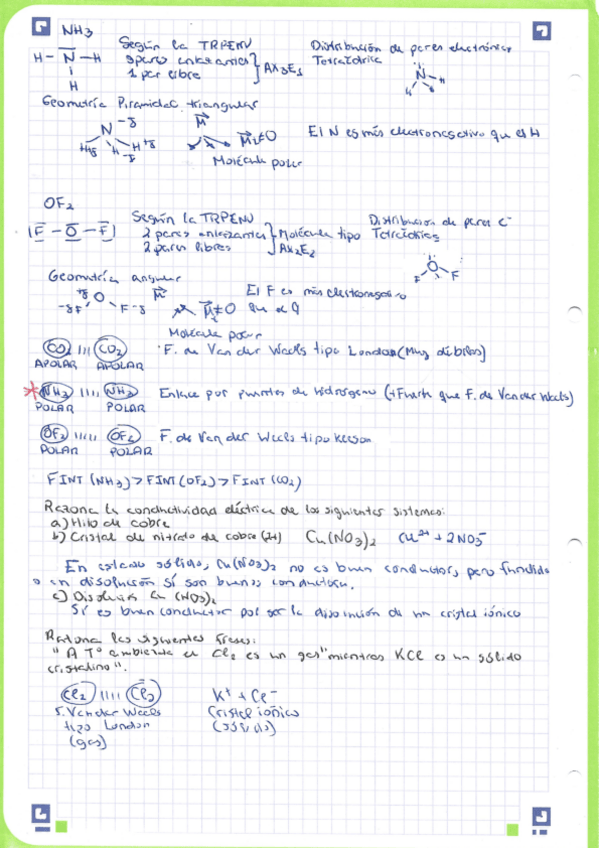 NH3
H - N - H
H
Según la TRPENV
3 pares enlazantes
1 par libre
AX3E1
Distribución de pares electrónicos
Tetraédrica
N
H H H
Geometría Piramidal triangular
-δ
N
H+δ H+δ H+δ
M
M≠0
Molécula polar
El N es más electronegativo que el H
OF2
|F - O - F|
Según la TRPENV
2 pares enlazantes
2 pares libres
Molécula tipo
AX2E2
Distribución de pares e-
Tetraédrica
O
F F
Geometría angular
+δ
O
-δF F-δ
M
M≠0
Molécula polar
El F es más electronegativo
que el O
CO2 |||| CO2 F. de Van der Waals tipo London (Muy débiles)
APOLAR APOLAR
* NH3 |||| NH3 Enlace por puentes de hidrógeno (+Fuerte que F. de Van der Waals)
POLAR POLAR
OF2 |||| OF2 F. de Van der Waals tipo Keesom
POLAR POLAR
FINT (NH3) > FINT (OF2) > FINT (CO2)
Razona la conductividad eléctrica de los siguientes sistemas:
a) Hilo de cobre
b) Cristal de nitrato de cobre (2+) Cu(NO3)2 Cu2+ + 2NO3-
En estado sólido, Cu(NO3)2 no es buen conductor, pero fundido
o en disolución sí son buenos conductores.
c) Disolución Cu(NO3)2
Sí es buen conductor por ser la disolución de un cristal iónico
Razona las siguientes frases:
"A Tº ambiente el Cl2 es un gas" mientras KCl es un sólido
cristalino".
Cl2 |||| Cl2
F. Van der Waals
tipo London
(gas)
K+ + Cl-
Cristal iónico
(sólido)